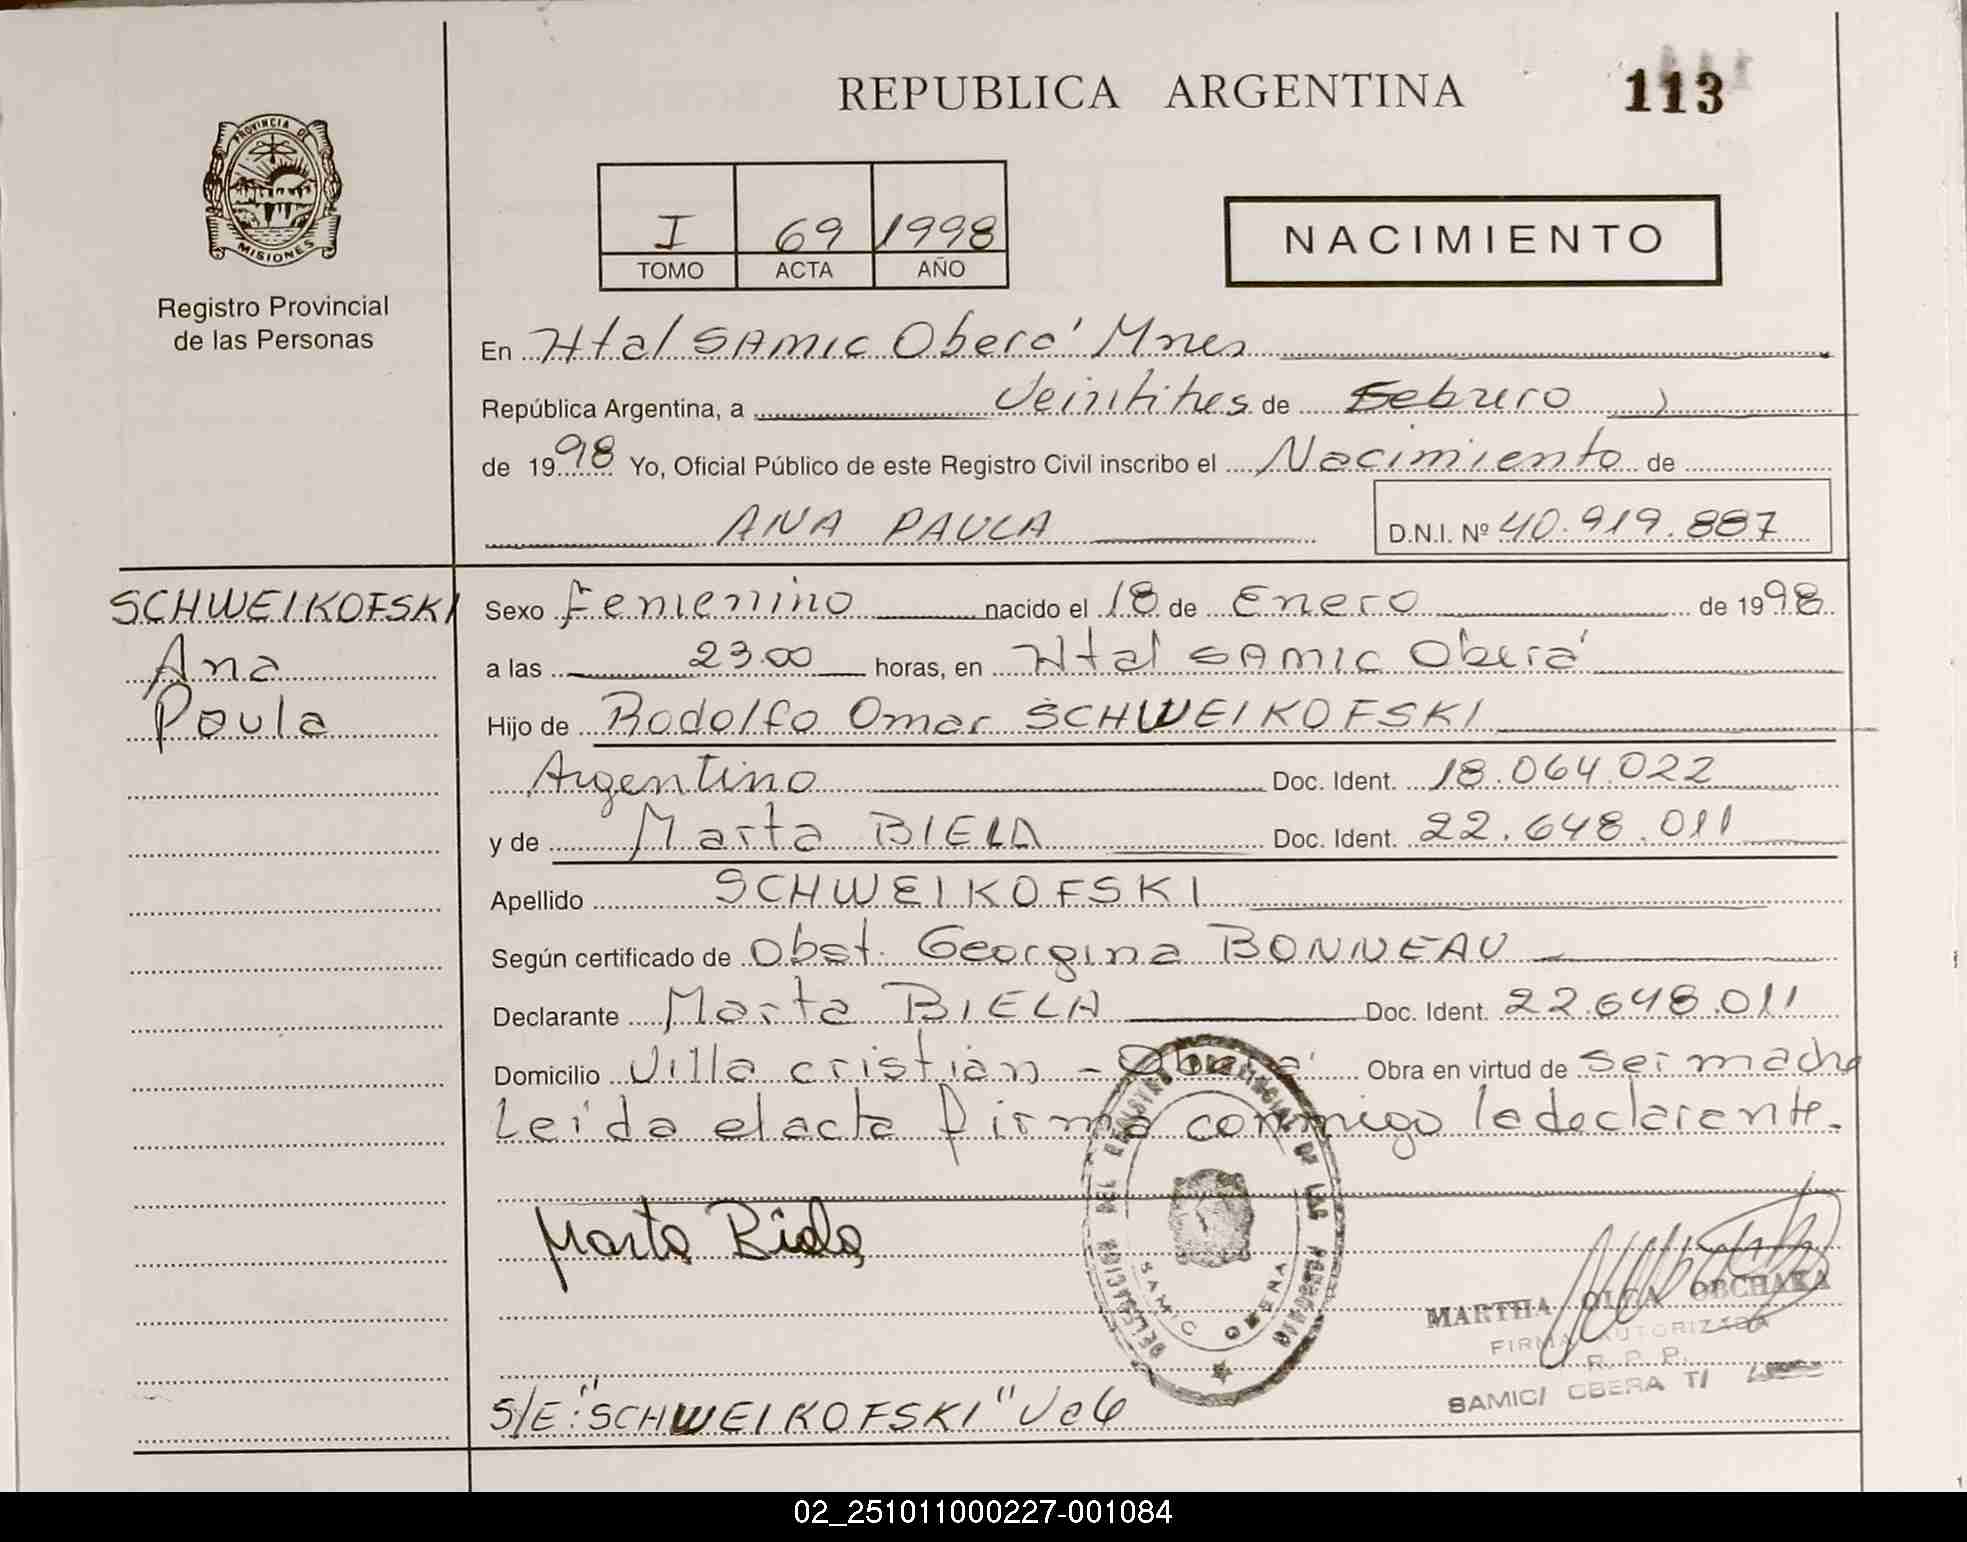 REPUBLICA ARGENTINA
113
PROVINCIA DE
MISIONES
Registro Provincial
de las Personas
I 69 1998
TOMO ACTA AÑO
NACIMIENTO
En Htal SAMIC Oberá Mnes
República Argentina, a Veintitres de Febrero
de 1998 Yo, Oficial Público de este Registro Civil inscribo el Nacimiento de
ANA PAULA D.N.I. Nº 40.919.887
SCHWEIKOFSKI
Ana
Paula
Sexo femenino nacido el 18 de Enero de 1998
a las 23.00 horas, en Htal SAMIC Oberá
Hijo de Rodolfo Omar SCHWEIKOFSKI
Argentino Doc. Ident. 18.064.022
y de Marta BIELA Doc. Ident. 22.648.011
Apellido SCHWEIKOFSKI
Según certificado de Obst. Georgina BONNEAU
Declarante Marta BIELA Doc. Ident. 22.648.011
Domicilio Villa cristian - Oberá Obra en virtud de ser madre
Leída el acta firma conmigo la declarante.
Marta Biela
DEL REGISTRO PROVINCIAL DE LAS PERSONAS
SAMIC
MARTHA OLGA OBCHAKA
FIRMA AUTORIZADA
R. P. P.
SAMIC/ OBERA T/
S/E: "SCHWEIKOFSKI" Vale
02_251011000227-001084